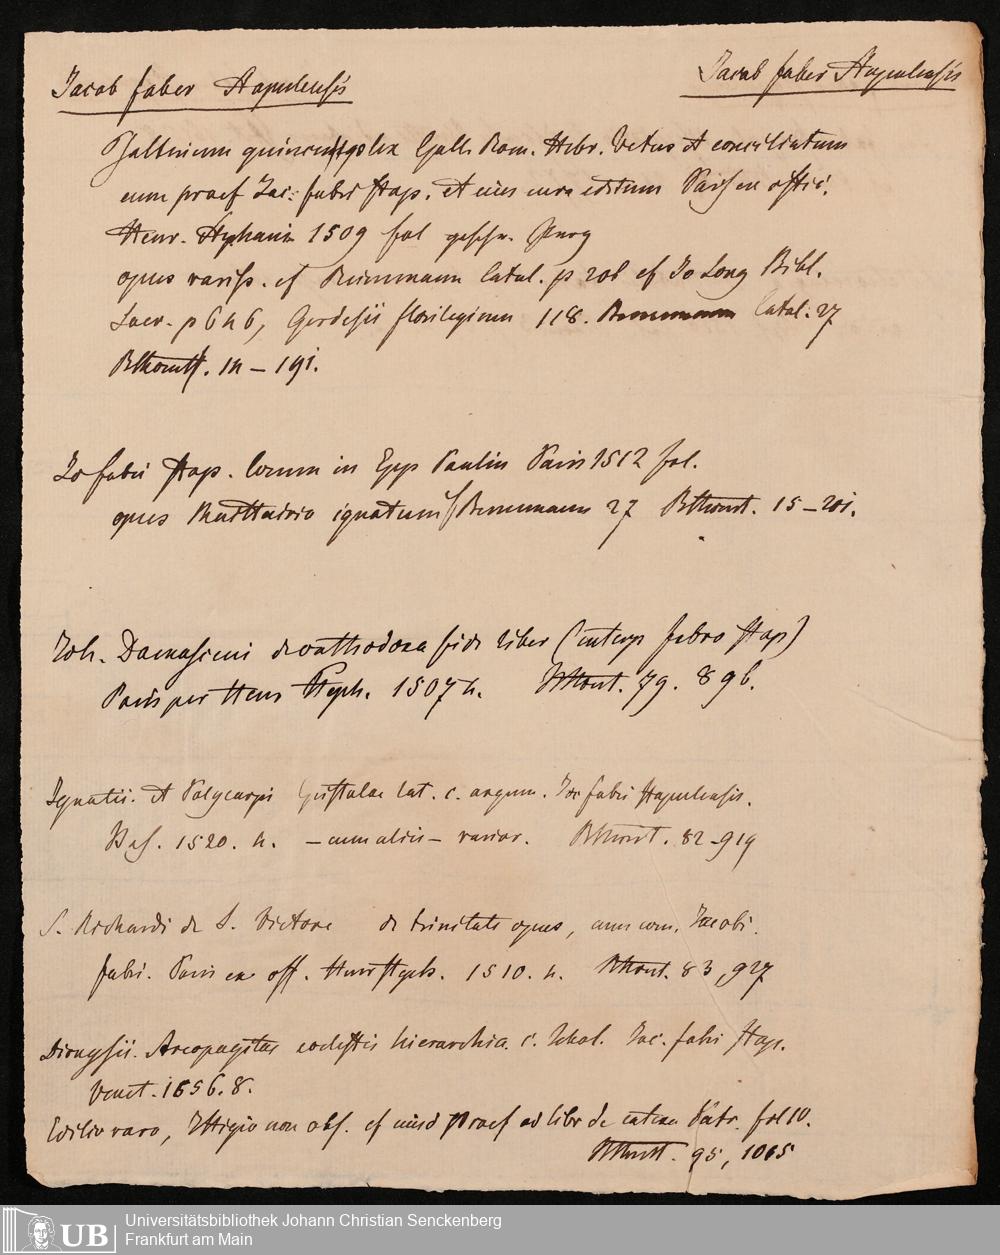 Jacob Faber Stapulensis
Jacob Faber Stapulensis
Psalterium quincuplex Gall. Rom. Hebr. Vetus et conciliatum
cum praef Jac: Fabri Stap. et eius cura editum Paris ex offic.
Henr. Stephani 1509 fol
opus rariss. cf Reimmann Catal. p 206 cf Le Long Bibl.
Sacr. p 646, Gerdesii florilegium 118. Catal. 27
14 – 191.
Ja Fabri Stap. Comm in Epp Paulin Paris 1512 fol.
opus Maittairio ignotum Reimmann 27 15 – 201.
Joh. Damasceni de orthodoxa fide liber (interp Fabro Stap)
Paris per Henr Steph. 1507 4. 79. 896.
Ignatii. et Polycarpi Epistolae lat. c. argum. Jac Fabri Stapulensis.
Bas. 1520. 4. – cum aliis – varior. 82 – 919
S. Richardi de S. Victore de trinitate opus, cum com. Jacobi.
Fabri. Paris ex off. Henr Steph. 1510. 4. 83, 927
Dionysii. Areopagitae coelestis hierarchia. c. Schol. Jac. Fabri Stap.
Venet. 1556. 8.
Editio rara, Ittigio non obs. cf eiusd Praef ad libr de catena Patr. fol 10.
95, 1065
UB
Universitätsbibliothek Johann Christian Senckenberg
Frankfurt am Main